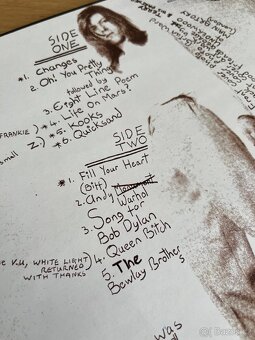 SIDE
ONE
*1. Changes
2. Oh! You Pretty
Things
followed by
3. Eight Line Poem
FRANKIE) *4. Life on Mars?
*5. Kooks
Z.) *6. Quicksand
small
SIDE
TWO
*1. Fill Your Heart
(Bitt)
2. Andy Warhol
3. Song for
Bob Dylan
V.U, WHITE LIGHT) 4. Queen Bitch
RETURNED
WITH THANKS
5. The
Bewlay Brothers
was